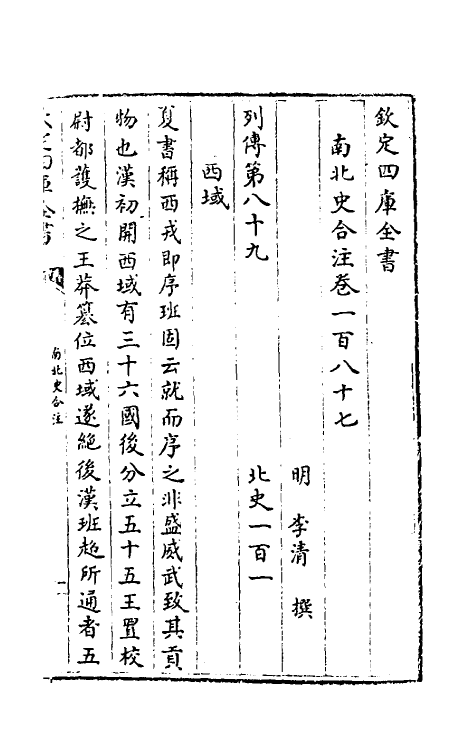 欽定四庫全書
南北史合注卷一百八十七
明 李清 撰
列傳第八十九 北史一百一
西域
夏書稱西戎即序班固云就而序之非盛威武致其貢
物也漢初開西域有三十六國後分立五十五王置校
尉都護撫之王莽簒位西域遂絶後漢班超所通者五
南北史合注